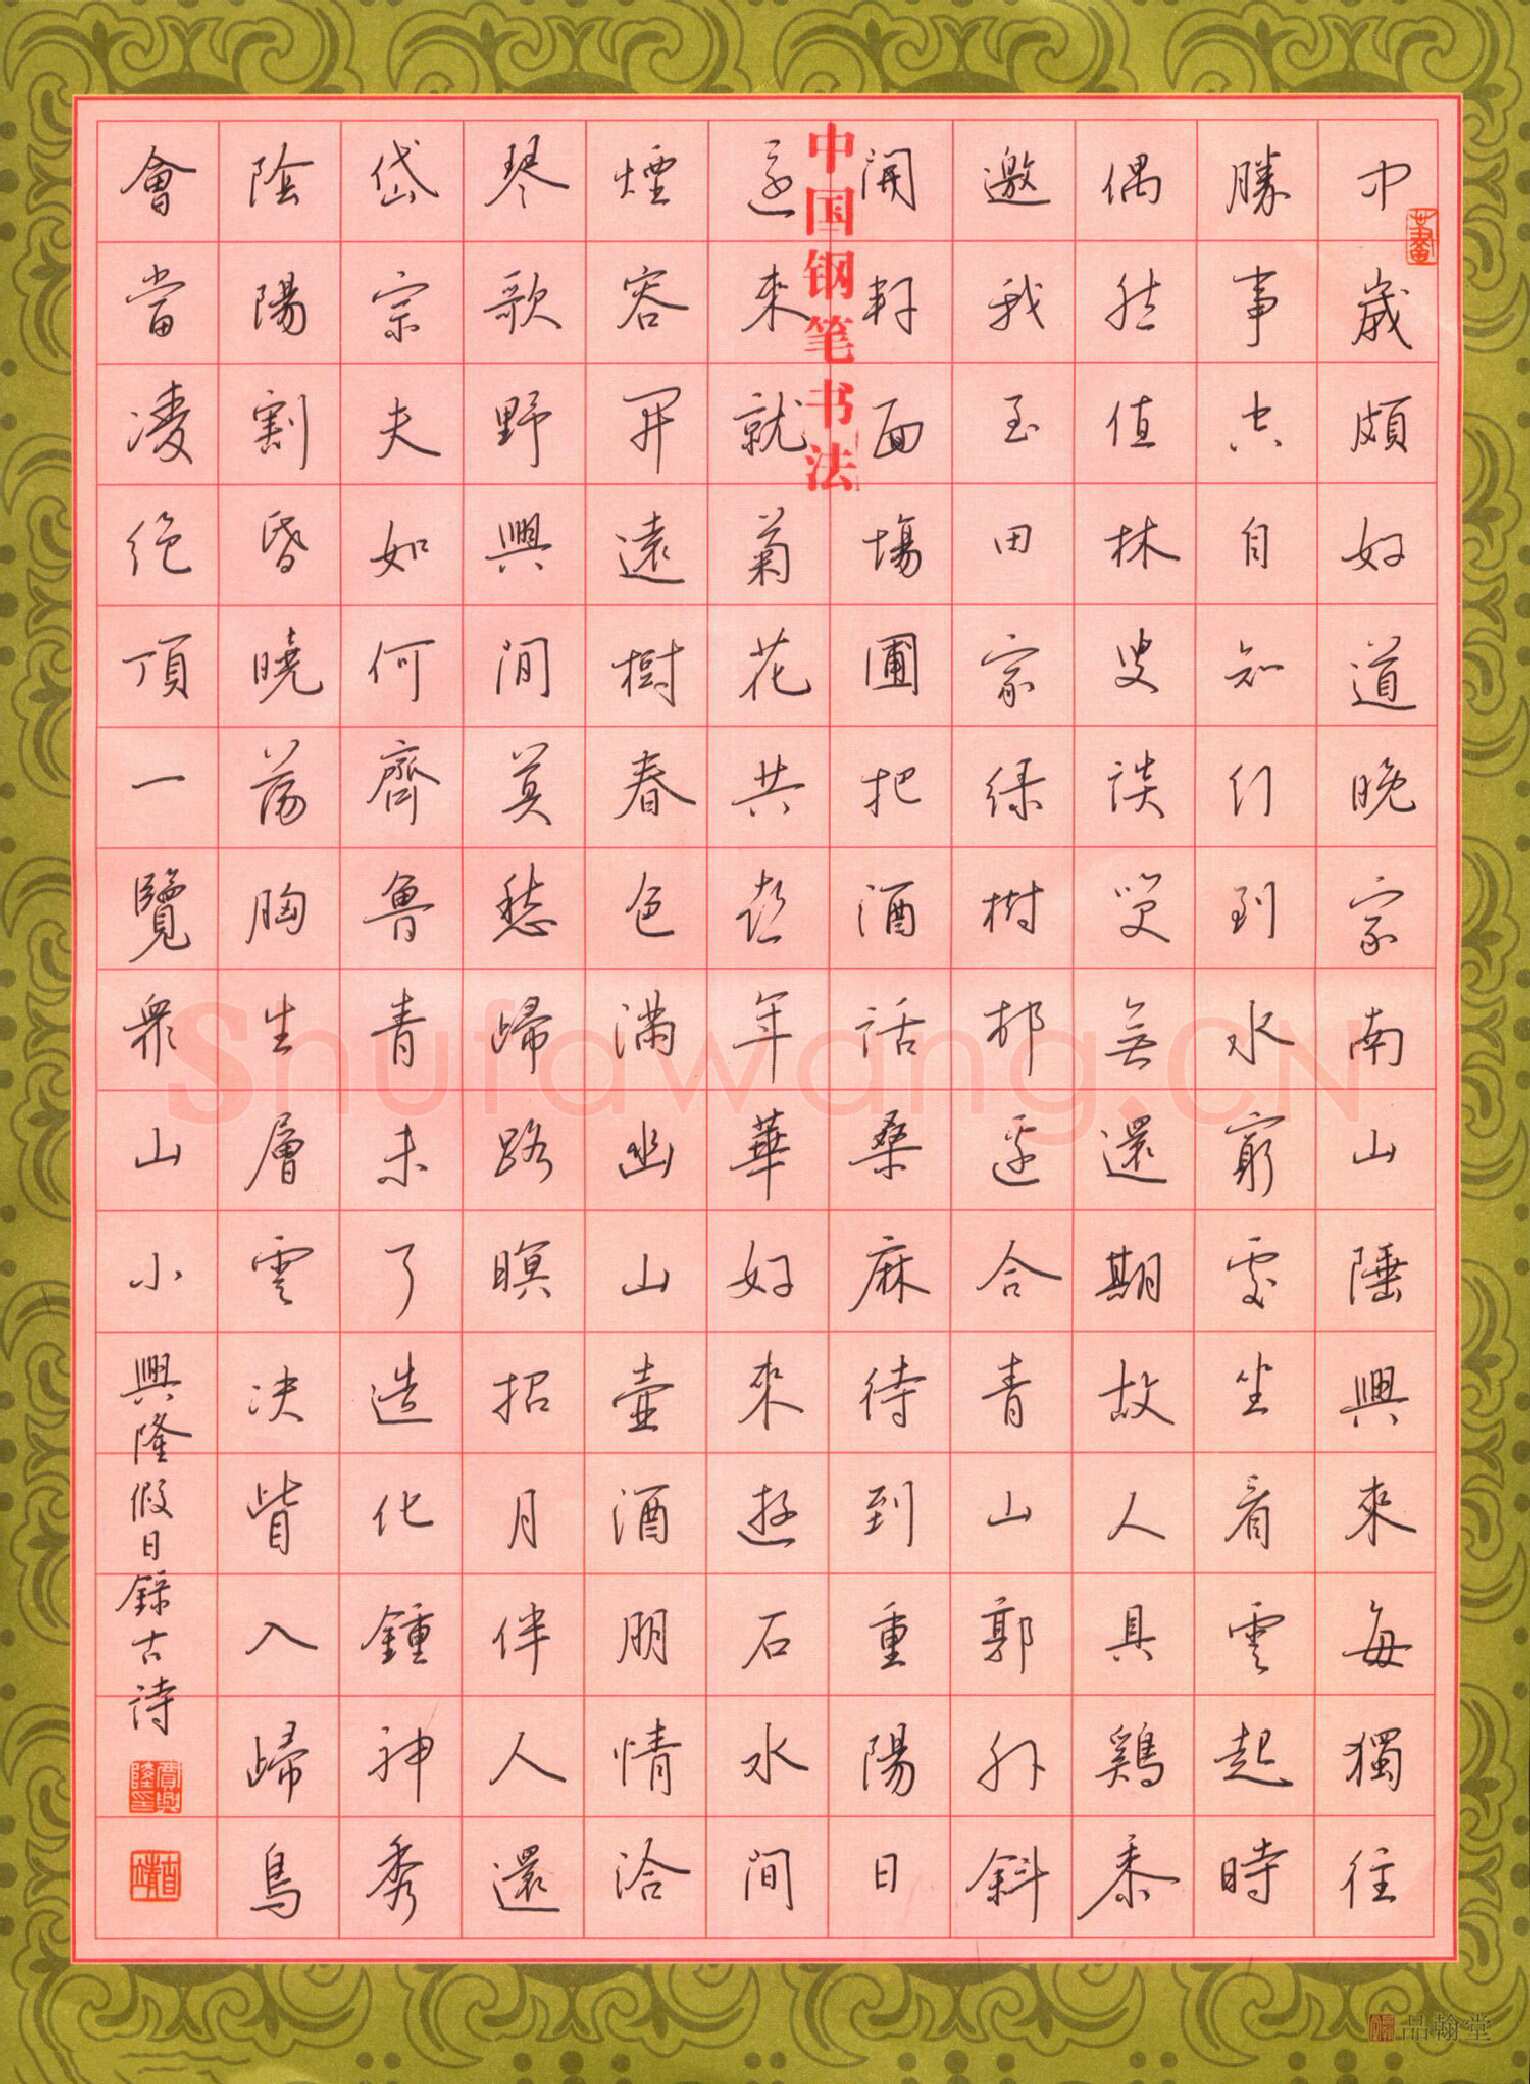 中歲頗好道晚家南山陲興來每獨往
勝事空自知行到水窮處坐看雲起時
偶然值林叟談笑無還期故人具鷄黍
邀我至田家綠樹村邊合青山郭外斜
開軒面場圃把酒話桑麻待到重陽日
中国钢笔书法
還來就菊花共喜年華好來遊石水間
煙容開遠樹春色滿幽山壺酒朋情洽
琴歌野興閒莫愁歸路暝招月伴人還
岱宗夫如何齊魯青未了造化鍾神秀
陰陽割昏曉蕩胸生層雲決眥入歸鳥
會當凌絕頂一覽眾山小
興隆假日錄古詩
賈興隆印
Shufawang.CN
品翰堂